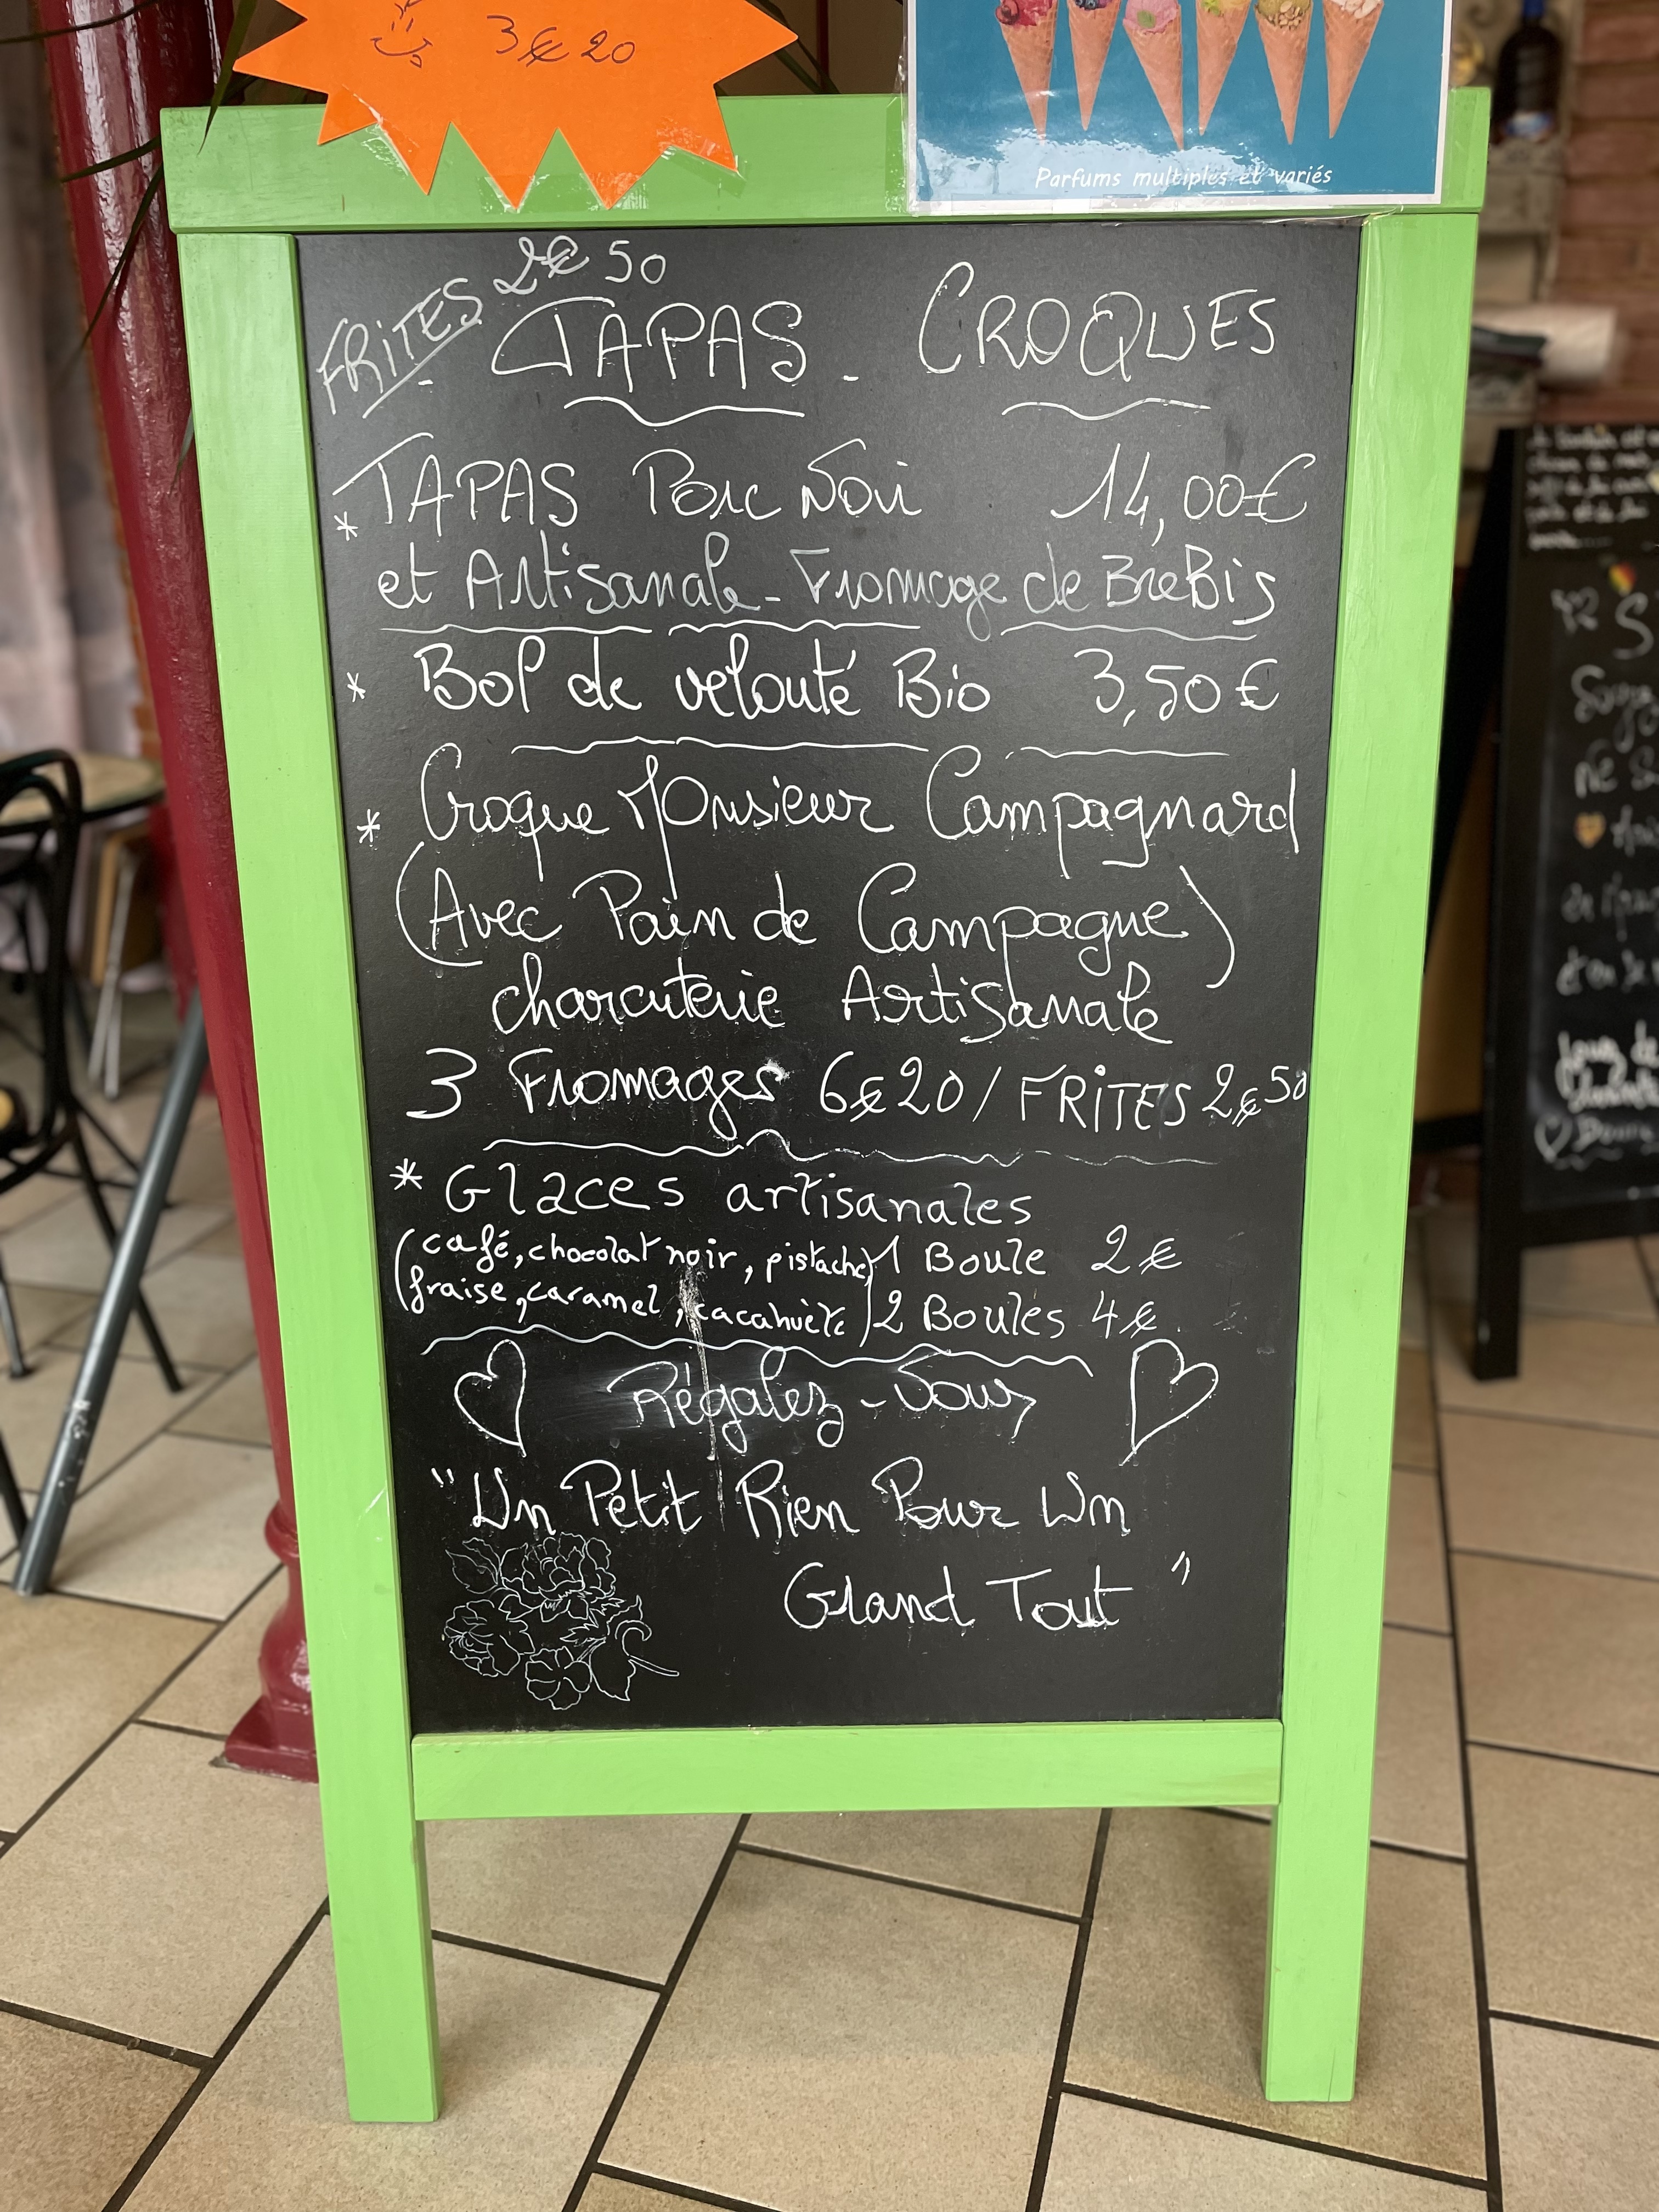 3€20
Parfums multiples et variés
FRITES 2€50
- TAPAS - CROQUES
* TAPAS Porc Noir 14,00€
et Artisanale - Fromage de BreBis
* Bol de velouté Bio 3,50€
* Croque Monsieur Campagnard
(Avec Pain de Campagne)
charcuterie Artisanale
3 Fromages 6€20 / FRITES 2€50
* Glaces artisanales
(café, chocolat noir, pistache) 1 Boule 2€
(fraise, caramel, cacahuète) 2 Boules 4€
Régalez-Vous
"Un Petit Rien Pour Un
Grand Tout"